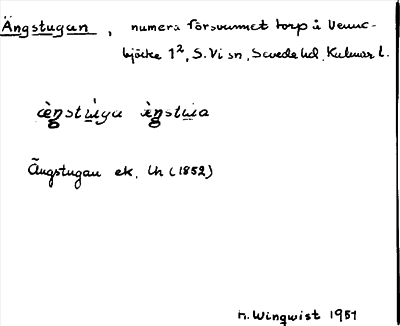 Ängstugan, numera försvunnet torp å Venne-
bjöcke 1², S. Vi sn, Sevede hd, Kalmar l.
Ängstugan ek. Lh (1852)
H. Wingwist 1951